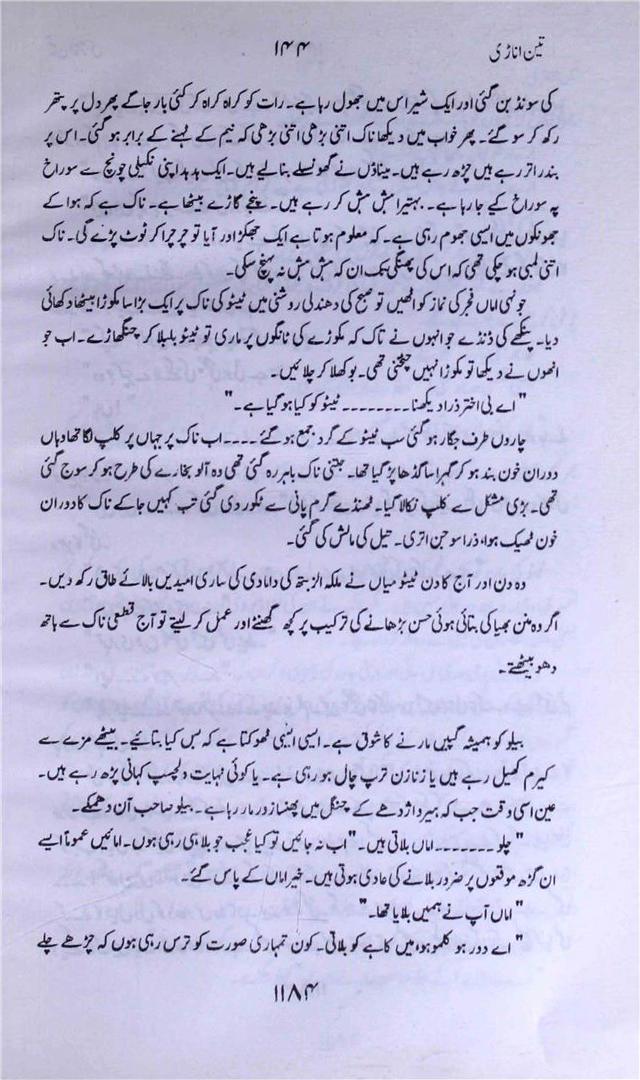 تین اناڑی
۱۴۴
کی سونڈ بن گئی اور ایک شیر اس میں جھول رہا ہے۔ رات کو کراہ کراہ کر کئی بار جاگے پھر دل پر پتھر
رکھ کر سو گئے۔ پھر خواب میں دیکھا ناک اتنی بڑھی اتنی بڑھی کہ نیم کے ٹہنے کے برابر ہو گئی۔ اس پر
بندر اتر رہے ہیں چڑھ رہے ہیں۔ میناؤں نے گھونسلے بنا لیے ہیں۔ ایک ہدہد اپنی نکیلی چونچ سے سوراخ
پہ سوراخ کیے جا رہا ہے۔ بہتیرا ہش ہش کر رہے ہیں۔ پنجے گاڑے بیٹھا ہے۔ ناک ہے کہ ہوا کے
جھونکوں میں ایسی جھوم رہی ہے۔ کہ معلوم ہوتا ہے ایک جھکڑ اور آیا تو چرچرا کر ٹوٹ پڑے گی۔ ناک
اتنی لمبی ہو چکی تھی کہ اس کی پھنگی تک ان کہ ہش ہش نہ پہنچ سکی۔
جونہی اماں فجر کی نماز کو اٹھیں تو صبح کی دھندلی روشنی میں ٹیٹو کی ناک پر ایک بڑا سا مکوڑا بیٹھا دکھائی
دیا۔ پنکھے کی ڈنڈے جو انہوں نے تاک کہ مکوڑے کی ٹانگوں پر ماری تو ٹیٹو بلبلا کر چنگھاڑے۔ اب جو
انھوں نے دیکھا تو مکوڑا نہیں چٹخنی تھی۔ بوکھلا کر چلائیں۔
"اے بی اختر ذرا دیکھنا۔۔۔۔۔۔۔۔ ٹیٹو کو کیا ہو گیا ہے۔"
چاروں طرف جگار ہو گئی سب ٹیٹو کے گرد جمع ہو گئے۔۔۔۔ اب ناک پر جہاں پر کلپ لگا تھا وہاں
دوران خون بند ہو کر گہرا سا گڈھا پڑ گیا تھا۔ جتنی ناک باہر رہ گئی تھی وہ آلو بخارے کی طرح ہو کر سوج گئی
تھی۔ بڑی مشکل سے کلپ نکالا گیا۔ ٹھنڈے گرم پانی سے ٹکور دی گئی تب کہیں جا کے ناک کا دوران
خون ٹھیک ہوا، ذرا سوجن اتری۔ تیل کی مالش کی گئی۔
وہ دن اور آج کا دن ٹیٹو میاں نے ملکہ الزبتھ کی دامادی کی ساری امیدیں بالائے طاق رکھ دیں۔
اگر وہ منن بھیا کی بتائی ہوئی حسن بڑھانے کی ترکیب پر کچھ گھنٹے اور عمل کر لیتے تو آج قطعی ناک سے ہاتھ
دھو بیٹھتے۔
ببلو کو ہمیشہ گپیں مارنے کا شوق ہے۔ ایسی ایسی ٹھوکتا ہے کہ بس کیا بتائیے۔ بیٹھے مزے سے
کیرم کھیل رہے ہیں یا زنازن ترپ چال ہو رہی ہے۔ یا کوئی نہایت دلچسپ کہانی پڑھ رہے ہیں۔
عین اسی وقت جب کہ ہیرو اژدھے کے چنگل میں پھنسا زور مار رہا ہے۔ ببلو صاحب آن دھمکے۔
"چلو۔۔۔۔۔۔۔ اماں بلاتی ہیں۔" اب نہ جائیں تو کیا عجب جو بلا ہی رہی ہوں۔ امائیں عموماً ایسے
ان گڑھ موقعوں پر ضرور بلانے کی عادی ہوتی ہیں۔ خیر اماں کے پاس گئے۔
"اماں آپ نے ہمیں بلایا تھا۔"
"اے دور ہو کلموہو، میں کاہے کو بلاتی۔ کون تمہاری صورت کو ترس رہی ہوں کہ چڑھے چلے
۱۱۸۴